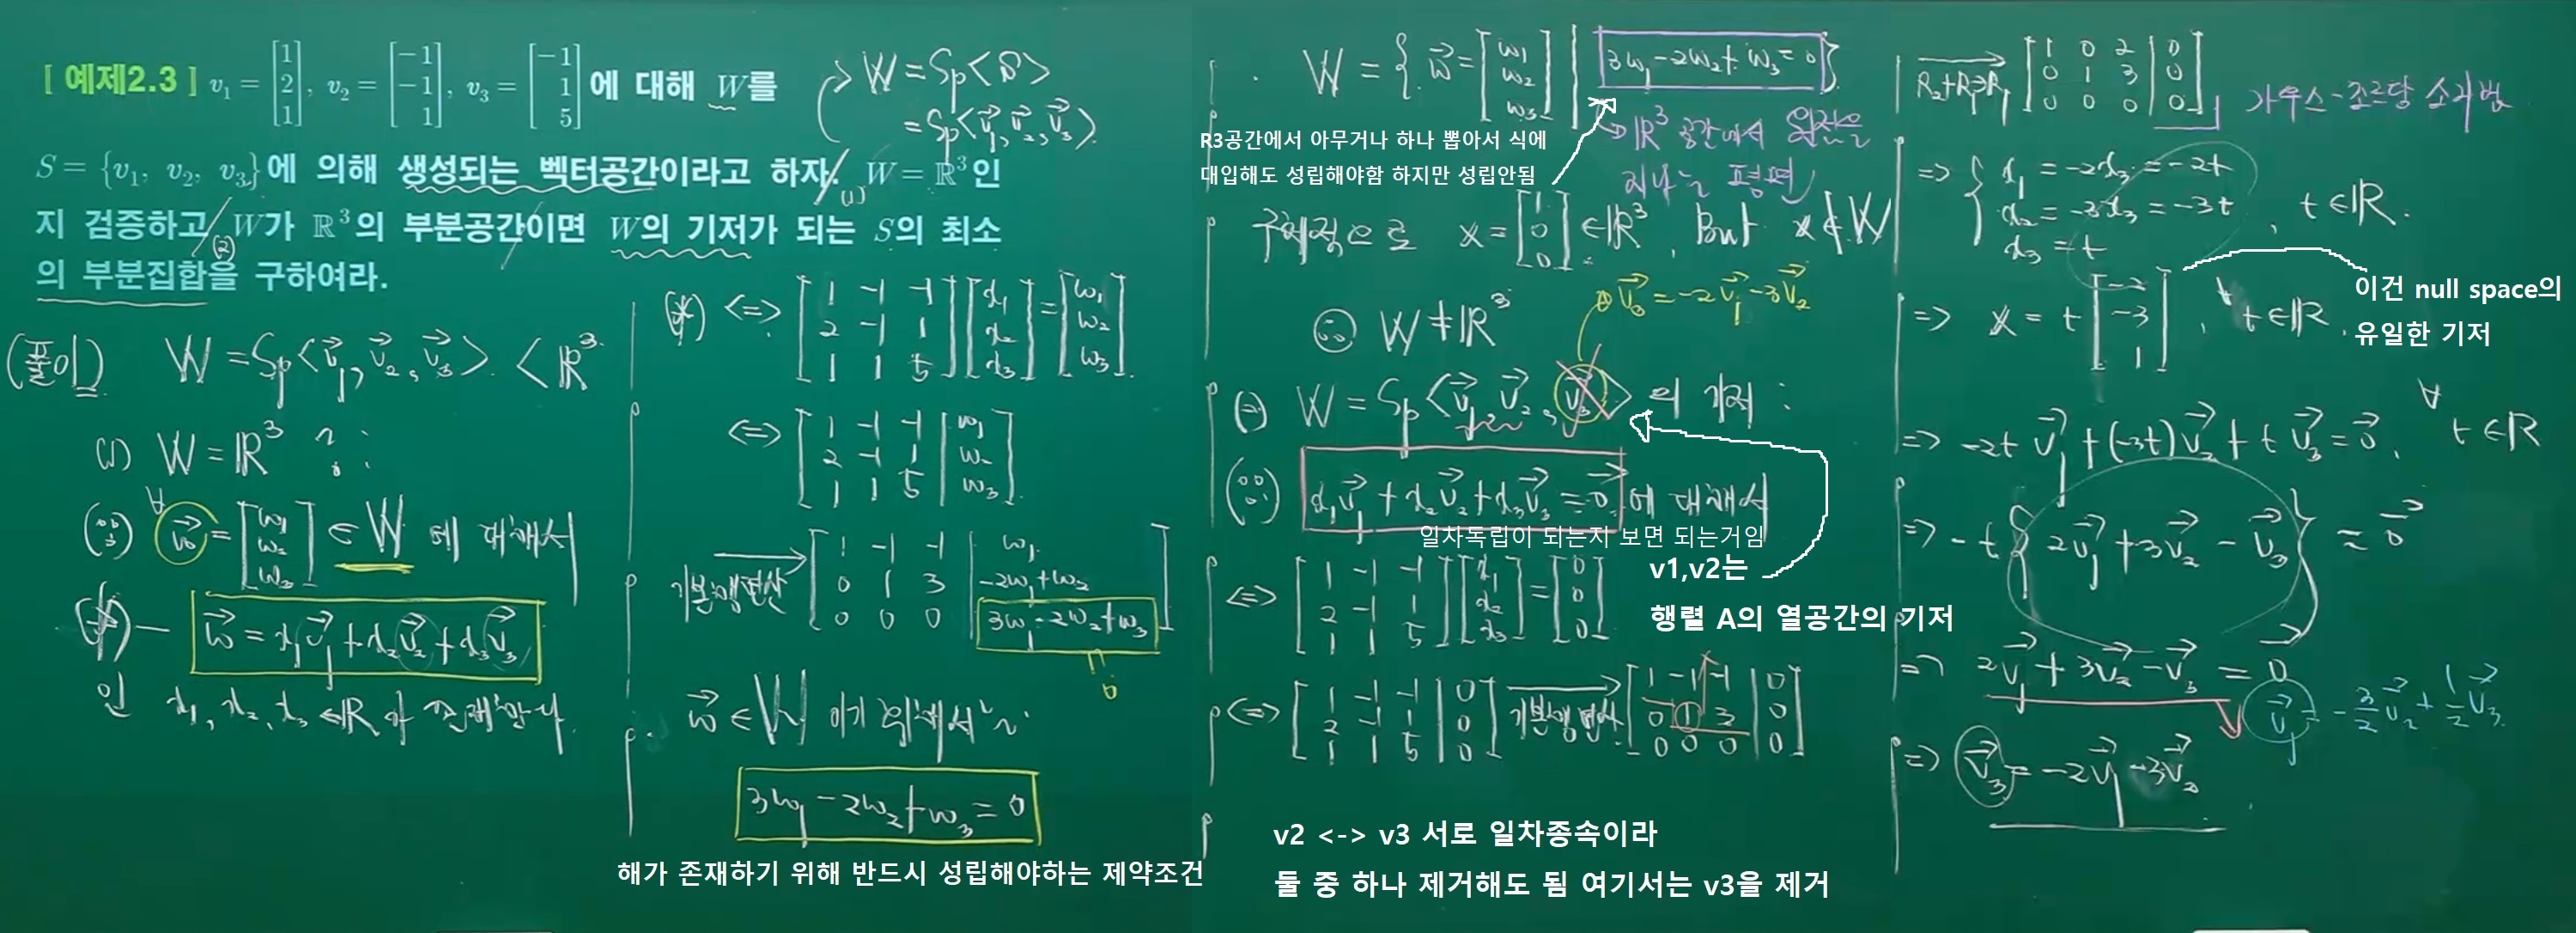 [ 예제2.3 ] v₁ = [1 2 1], v₂ = [-1 -1 1], v₃ = [-1 1 5] 에 대해 W를
S = {v₁, v₂, v₃}에 의해 생성되는 벡터공간이라고 하자. W = ℝ³인
지 검증하고 W가 ℝ³의 부분공간이면 W의 기저가 되는 S의 최소
의 부분집합을 구하여라.
(1)
(2)
W = Sp<S>
= Sp<v₁, v₂, v₃>
(풀이) W = Sp<v₁, v₂, v₃> < ℝ³
(1) W = ℝ³ ? :
(∵) ∀w = [w₁ w₂ w₃] ∈ W 에 대해서
(*) — w = x₁v₁ + x₂v₂ + x₃v₃
인 x₁, x₂, x₃ ∈ ℝ 가 존재한다
(*) <=> [1 -1 -1; 2 -1 1; 1 1 5] [x₁ x₂ x₃] = [w₁ w₂ w₃]
<=> [1 -1 -1 | w₁; 2 -1 1 | w₂; 1 1 5 | w₃]
기본행연산 [1 -1 -1 | w₁; 0 1 3 | -2w₁+w₂; 0 0 0 | 3w₁-2w₂+w₃]
0
w ∈ W 이기 위해서는
3w₁ - 2w₂ + w₃ = 0
해가 존재하기 위해 반드시 성립해야하는 제약조건
W = { w = [w₁ w₂ w₃] | 3w₁ - 2w₂ + w₃ = 0 }
R3공간에서 아무거나 하나 뽑아서 식에
대입해도 성립해야함 하지만 성립안됨
ℝ³ 공간에서 원점을
지나는 평면
구체적으로 x = [1 0 0] ∈ ℝ³, But x ∉ W
∴ W ≠ ℝ³
v₃ = -2v₁ - 3v₂
(2) W = Sp<v₁, v₂, v₃> 의 기저 :
(∵) x₁v₁ + x₂v₂ + x₃v₃ = 0 에 대해서
일차독립이 되는지 보면 되는거임
v1,v2는
행렬 A의 열공간의 기저
<=> [1 -1 -1; 2 -1 1; 1 1 5] [x₁ x₂ x₃] = [0 0 0]
<=> [1 -1 -1 | 0; 2 -1 1 | 0; 1 1 5 | 0] 기본행연산 [1 -1 -1 | 0; 0 1 3 | 0; 0 0 0 | 0]
v2 <-> v3 서로 일차종속이라
둘 중 하나 제거해도 됨 여기서는 v3을 제거
R₂+R₁→R₁ [1 0 2 | 0; 0 1 3 | 0; 0 0 0 | 0] 가우스-조르당 소거법
=> { x₁ = -2x₃ = -2t
x₂ = -3x₃ = -3t , t∈ℝ.
x₃ = t
=> x = t [-2 -3 1], ∀t∈ℝ.
이건 null space의
유일한 기저
=> -2t v₁ + (-3t)v₂ + t v₃ = 0, ∀t∈ℝ
=> -t {2v₁ + 3v₂ - v₃} = 0
=> 2v₁ + 3v₂ - v₃ = 0
v₁ = -3/2 v₂ + 1/2 v₃
=> v₃ = -2v₁ - 3v₂